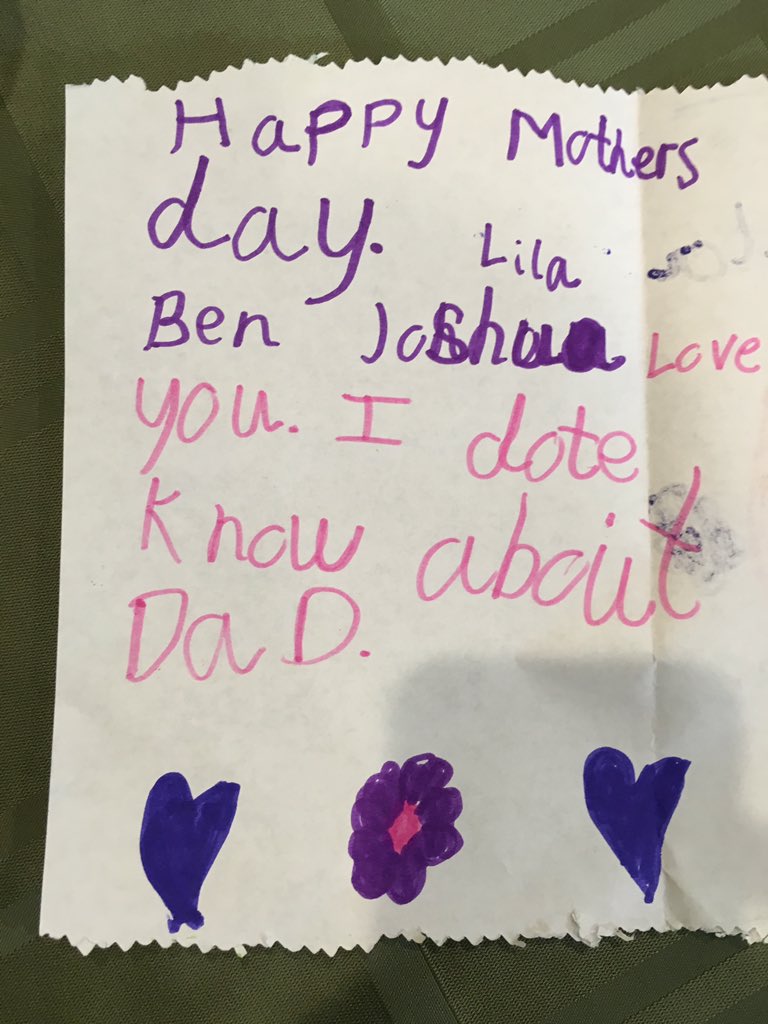 Happy Mothers
day. Lila
Ben Joshua Love
you. I dote
know about
DaD.